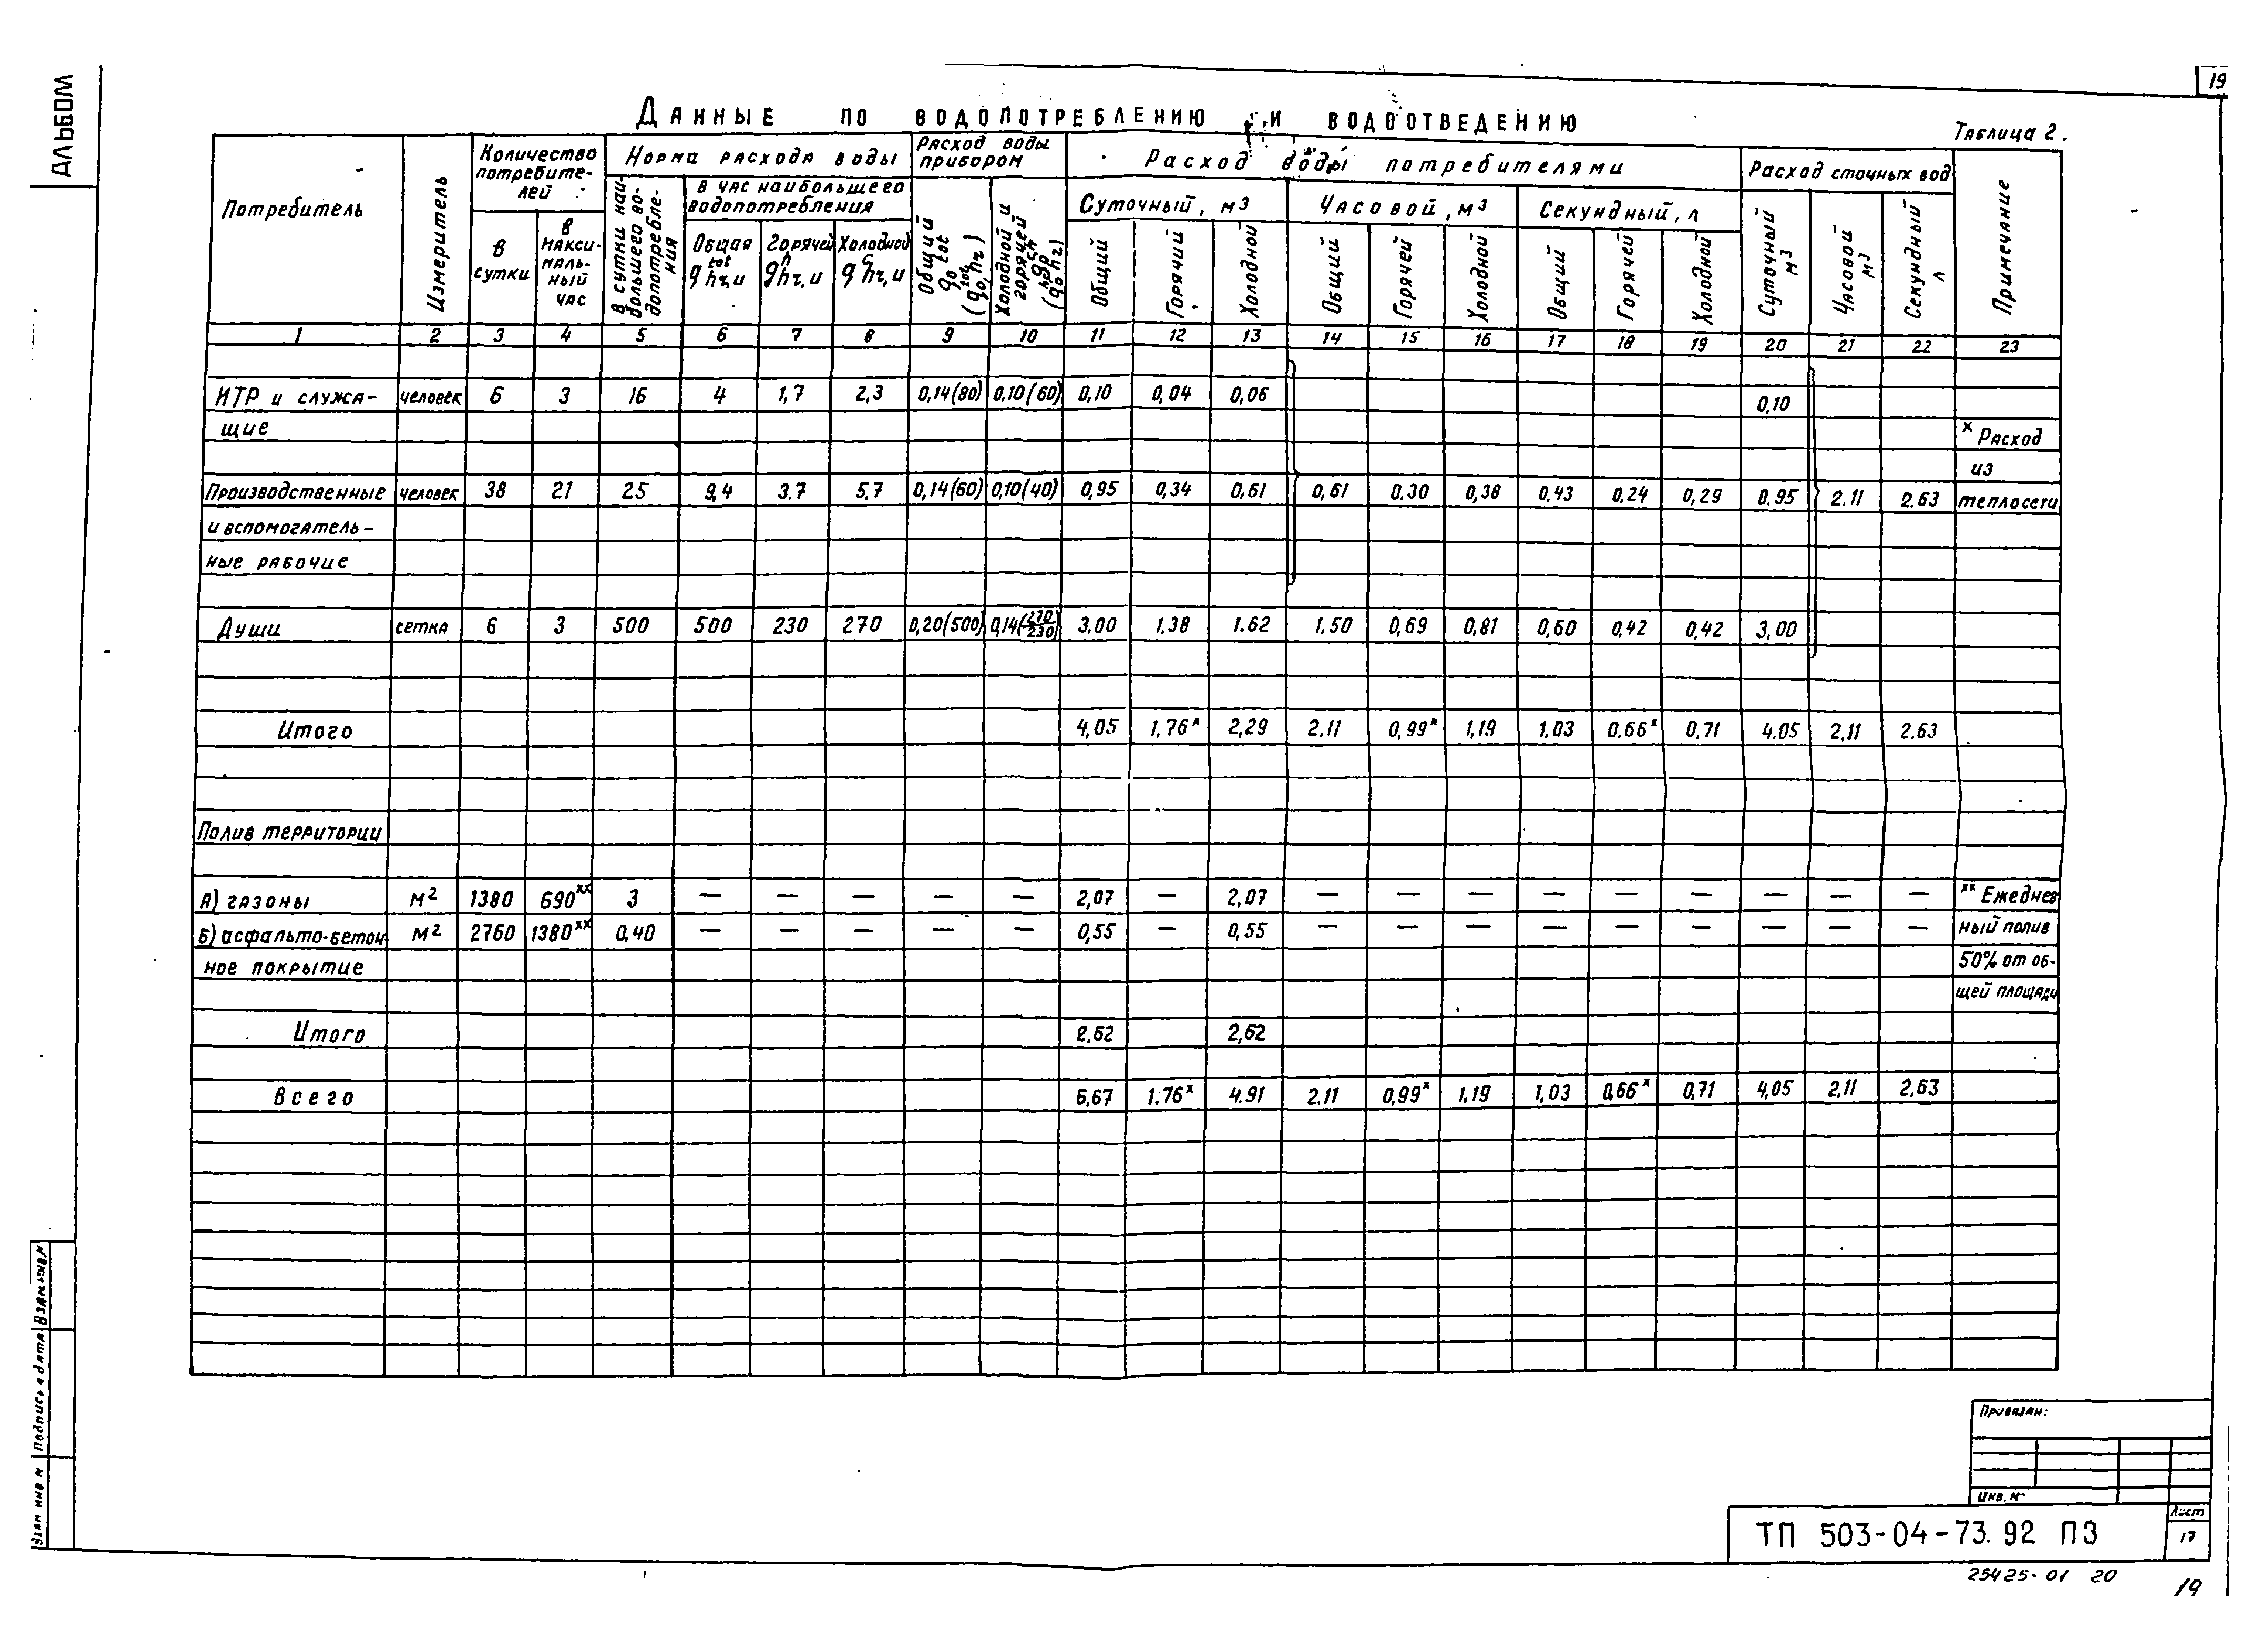 АЛЬБОМ
19
Данные по водопотреблению и водоотведению
Таблица 2.
Потребитель
Измеритель
Количество потребите-лей
в сутки
в макси-маль-ный час
Норма расхода воды
в сутки наи-большего во-допотребле-ния
в час наибольшего водопотребления
Общая q tot hr, u
Горячей q h hr, u
Холодной q c hr, u
Расход воды прибором
Общий q tot o (q tot o, hr)
Холодной и горячей
Расход воды потребителями
Суточный, м3
Общий
Горячий
Холодной
Часовой, м3
Общий
Горячей
Холодной
Секундный, л
Общий
Горячей
Холодной
Расход сточных вод
Суточный м3
Часовой м3
Секундный л
Примечание
1 2 3 4 5 6 7 8 9 10 11 12 13 14 15 16 17 18 19 20 21 22 23
ИТР и служа- человек 6 3 16 4 1,7 2,3 0,14(80) 0,10(60) 0,10 0,04 0,06 0,10
щие
x Расход
из
Производственные человек 38 21 25 9,4 3.7 5,7 0,14(60) 0,10(40) 0,95 0,34 0,61 0,61 0,30 0,38 0,43 0,24 0,29 0.95 2.11 2.63 теплосети
и вспомогатель-
ные рабочие
Души сетка 6 3 500 500 230 270 0,20(500) 0,14(270/230) 3,00 1,38 1.62 1.50 0,69 0,81 0,60 0,42 0,42 3,00
Итого 4,05 1,76x 2,29 2.11 0,99x 1,19 1,03 0.66x 0,71 4.05 2,11 2.63
Полив территории
А) газоны м2 1380 690xx 3 — — — — — 2,07 — 2,07 — — — — — — — — — xx Ежеднев
Б) асфальто-бетон м2 2760 1380xx 0,40 — — — — — 0,55 — 0,55 — — — — — — — — — ный полив
ное покрытие 50% от об-
щей площади
Итого 2.62 2,62
Всего 6,67 1.76x 4.91 2.11 0,99x 1,19 1,03 0,66x 0,71 4,05 2,11 2.63
Привязан:
Инв. №
ТП 503-04-73.92 ПЗ
Лист
17
25425-01 20
19
Подпись и дата
Взам инв №